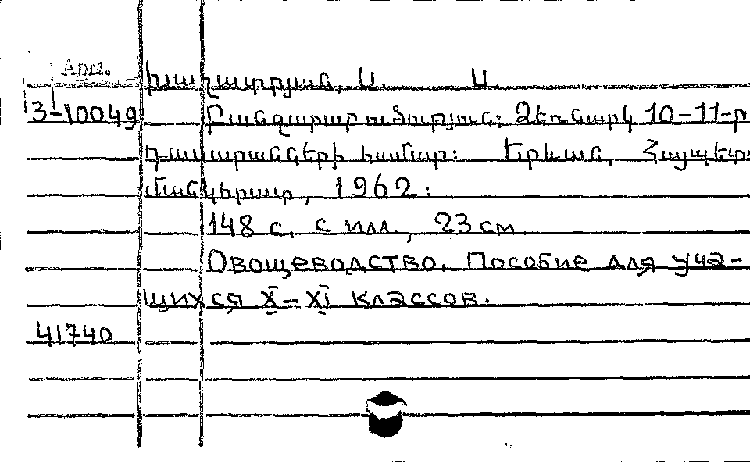 Арм.
Խաչատրյան, Ա. Ա
3-10049 Բանջարաբուծություն: Ձեռնարկ 10-11-ր
դասարանների համար: Երևան, Հայպետ
մանկհրատ, 1962:
148 с. с илл., 23 см.
Овощеводство. Пособие для уча-
щихся X-XI классов.
41740